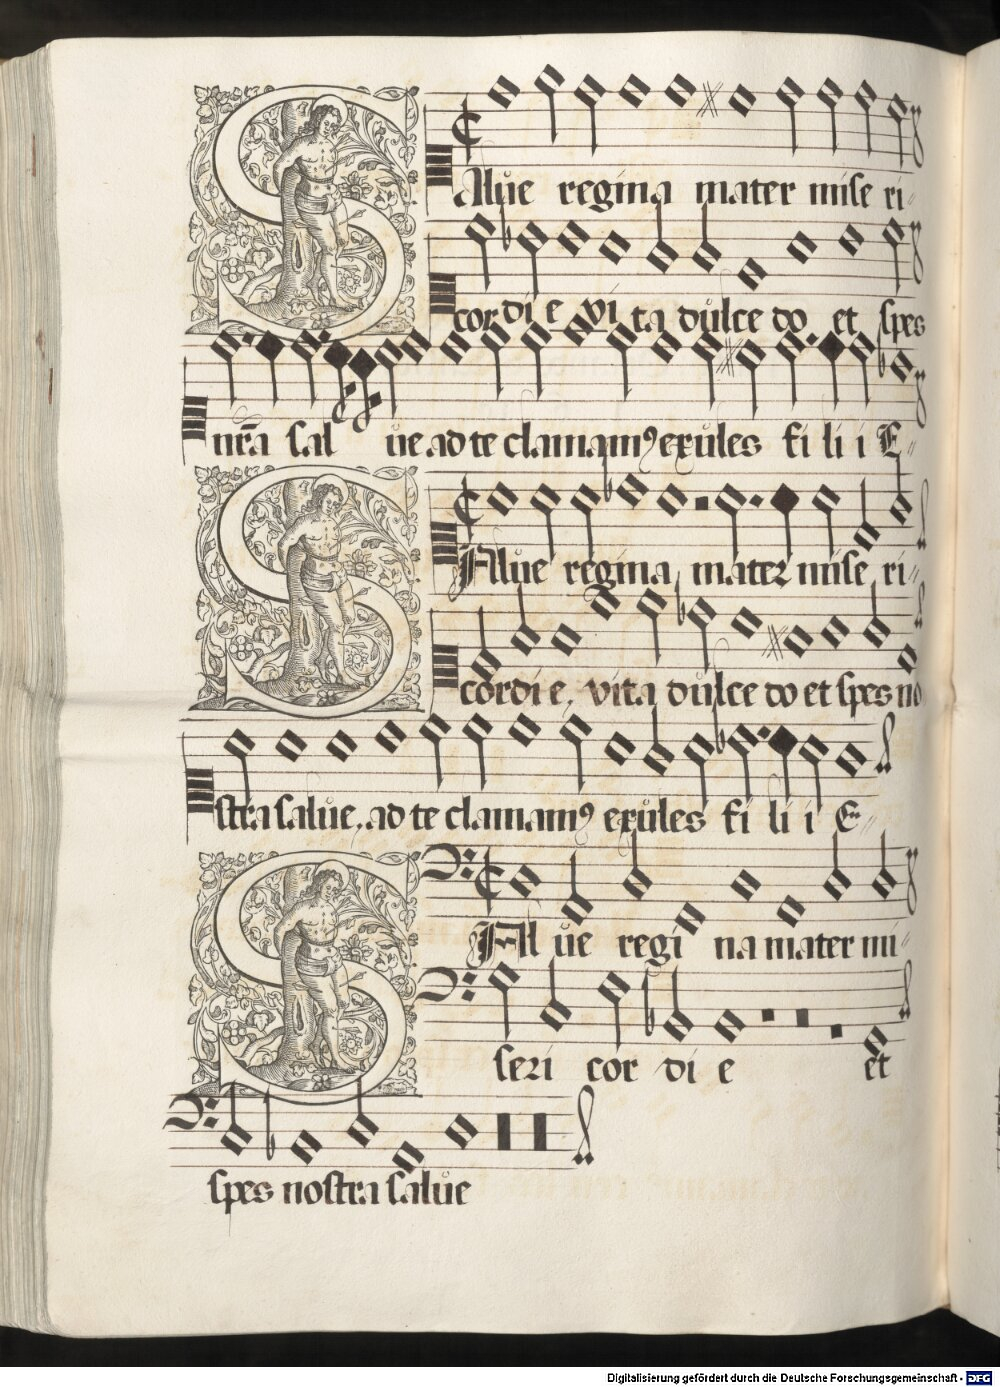 SAlůe regina mater mise ri
cordi e vi ta důlce do et spes
nr̃a sal ůe ad te clamamꝰ exůles fi li i E
SAllůe regina, mater mise ri
cordi e, vita důlce do et spes no
stra salůe, ad te clamamꝰ exůles fi li i E
SAll ůe regi na mater mi
seri cor di e et
spes nostra salůe
Digitalisierung gefördert durch die Deutsche Forschungsgemeinschaft - DFG